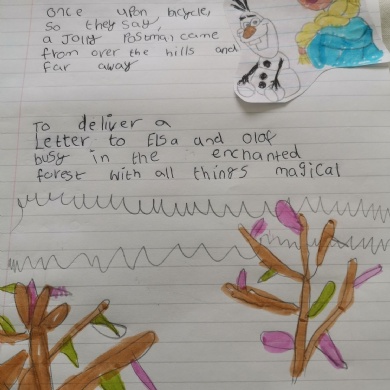 once upon bicycle,
so they say,
a Jolly Postman came
from over the hills and
far away
To deliver a
Letter to Elsa and olaf
busy in the enchanted
forest with all things magical